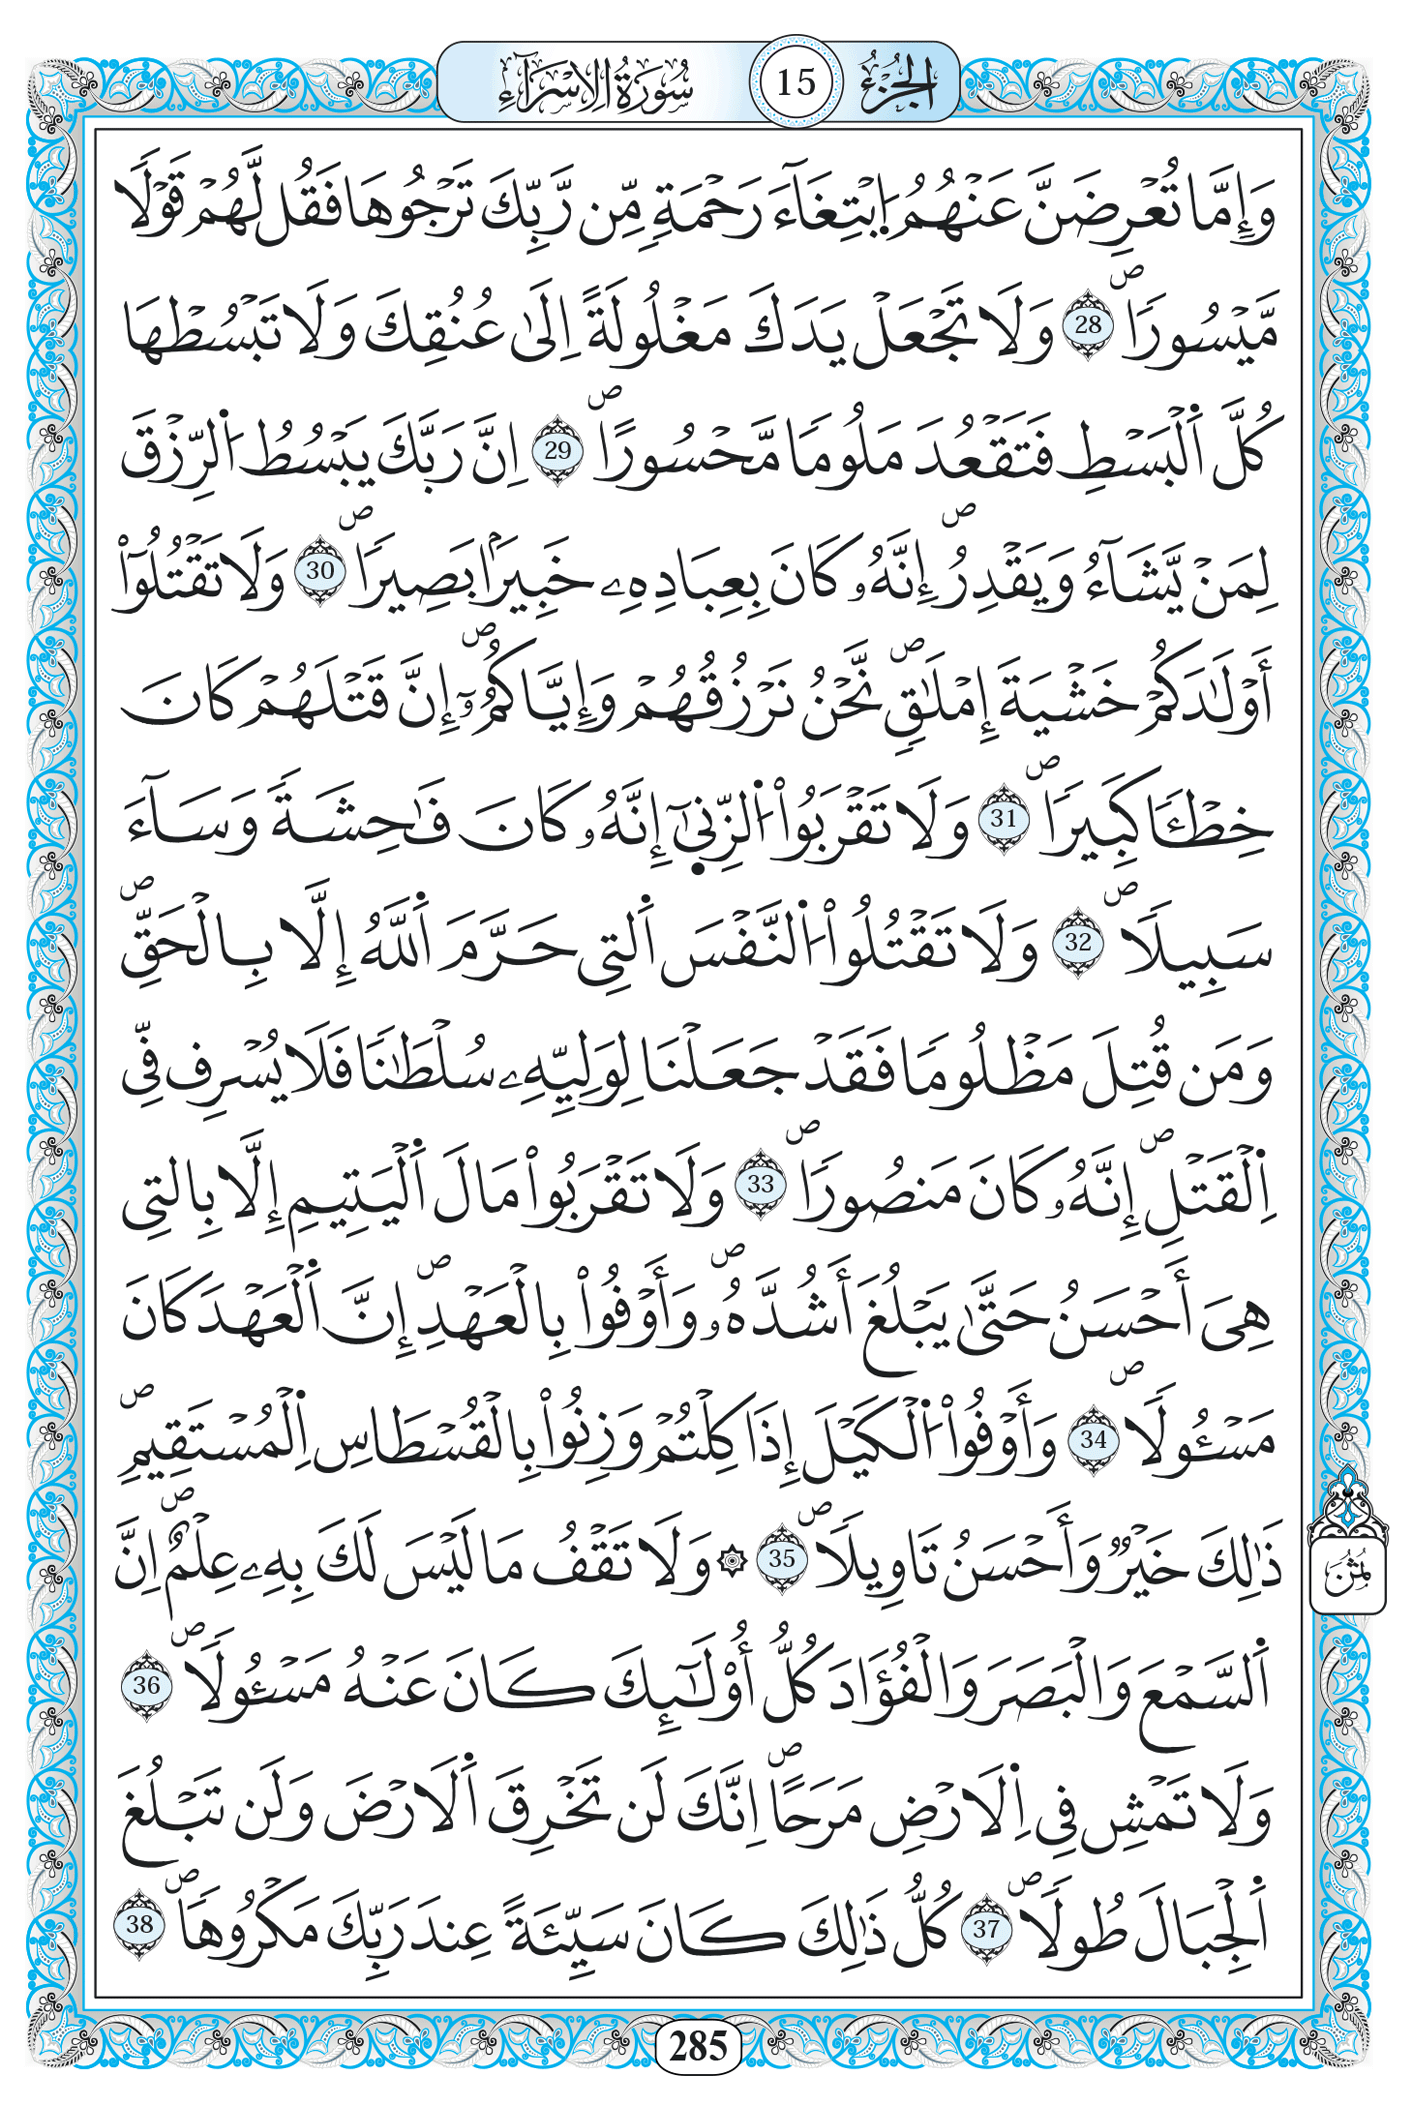 الجزء 15 سورة الإسراء
وَإِمَّا تُعْرِضَنَّ عَنْهُمُ اُ۪بْتِغَآءَ رَحْمَةٖ مِّن رَّبِّكَ تَرْجُوهَا فَقُل لَّهُمْ قَوْلاٗ
مَّيْسُوراٗۖ 28 وَلَا تَجْعَلْ يَدَكَ مَغْلُولَةً اِلَىٰ عُنُقِكَ وَلَا تَبْسُطْهَا
كُلَّ اَ۬لْبَسْطِ فَتَقْعُدَ مَلُوماٗ مَّحْسُوراًۖ 29 اِنَّ رَبَّكَ يَبْسُطُ اُ۬لرِّزْقَ
لِمَنْ يَّشَآءُ وَيَقْدِرُۖ إِنَّهُۥ كَانَ بِعِبَادِهِۦ خَبِيراَۢ بَصِيراٗۖ 30 وَلَا تَقْتُلُوٓاْ
أَوْلَٰدَكُمْ خَشْيَةَ إِمْلَٰقٖۖ نَّحْنُ نَرْزُقُهُمْ وَإِيَّاكُمُۥٓۖ إِنَّ قَتْلَهُمْ كَانَ
خِطْـٔاٗ كَبِيراٗۖ 31 وَلَا تَقْرَبُواْ اُ۬لزِّنَىٰٓ إِنَّهُۥ كَانَ فَٰحِشَةٗ وَسَآءَ
سَبِيلاٗۖ 32 وَلَا تَقْتُلُواْ اُ۬لنَّفْسَ اَ۬لتِي حَرَّمَ اَ۬للَّهُ إِلَّا بِالْحَقِّۖ
وَمَن قُتِلَ مَظْلُوماٗ فَقَدْ جَعَلْنَا لِوَلِيِّهِۦ سُلْطَٰناٗ فَلَا يُسْرِف فِّي
اِ۬لْقَتْلِۖ إِنَّهُۥ كَانَ مَنصُوراٗۖ 33 وَلَا تَقْرَبُواْ مَالَ اَ۬لْيَتِيمِ إِلَّا بِالتِي
هِيَ أَحْسَنُ حَتَّىٰ يَبْلُغَ أَشُدَّهُۥۖ وَأَوْفُواْ بِالْعَهْدِۖ إِنَّ اَ۬لْعَهْدَ كَانَ
مَسْـُٔولاٗۖ 34 وَأَوْفُواْ اُ۬لْكَيْلَ إِذَا كِلْتُمْ وَزِنُواْ بِالْقُسْطَاسِ اِ۬لْمُسْتَقِيمِۖ
ذَٰلِكَ خَيْرٞ وَأَحْسَنُ تَاوِيلاٗۖ 35 ۞ وَلَا تَقْفُ مَا لَيْسَ لَكَ بِهِۦ عِلْمٌۖ اِنَّ
اَ۬لسَّمْعَ وَالْبَصَرَ وَالْفُؤَادَ كُلُّ أُوْلَٰٓئِكَ كَانَ عَنْهُ مَسْـُٔولاٗۖ 36
وَلَا تَمْشِ فِي اِ۬لَارْضِ مَرَحاًۖ اِنَّكَ لَن تَخْرِقَ اَ۬لَارْضَ وَلَن تَبْلُغَ
اَ۬لْجِبَالَ طُولاٗۖ 37 كُلُّ ذَٰلِكَ كَانَ سَيِّئَةً عِندَ رَبِّكَ مَكْرُوهاٗۖ 38
ثمن
285